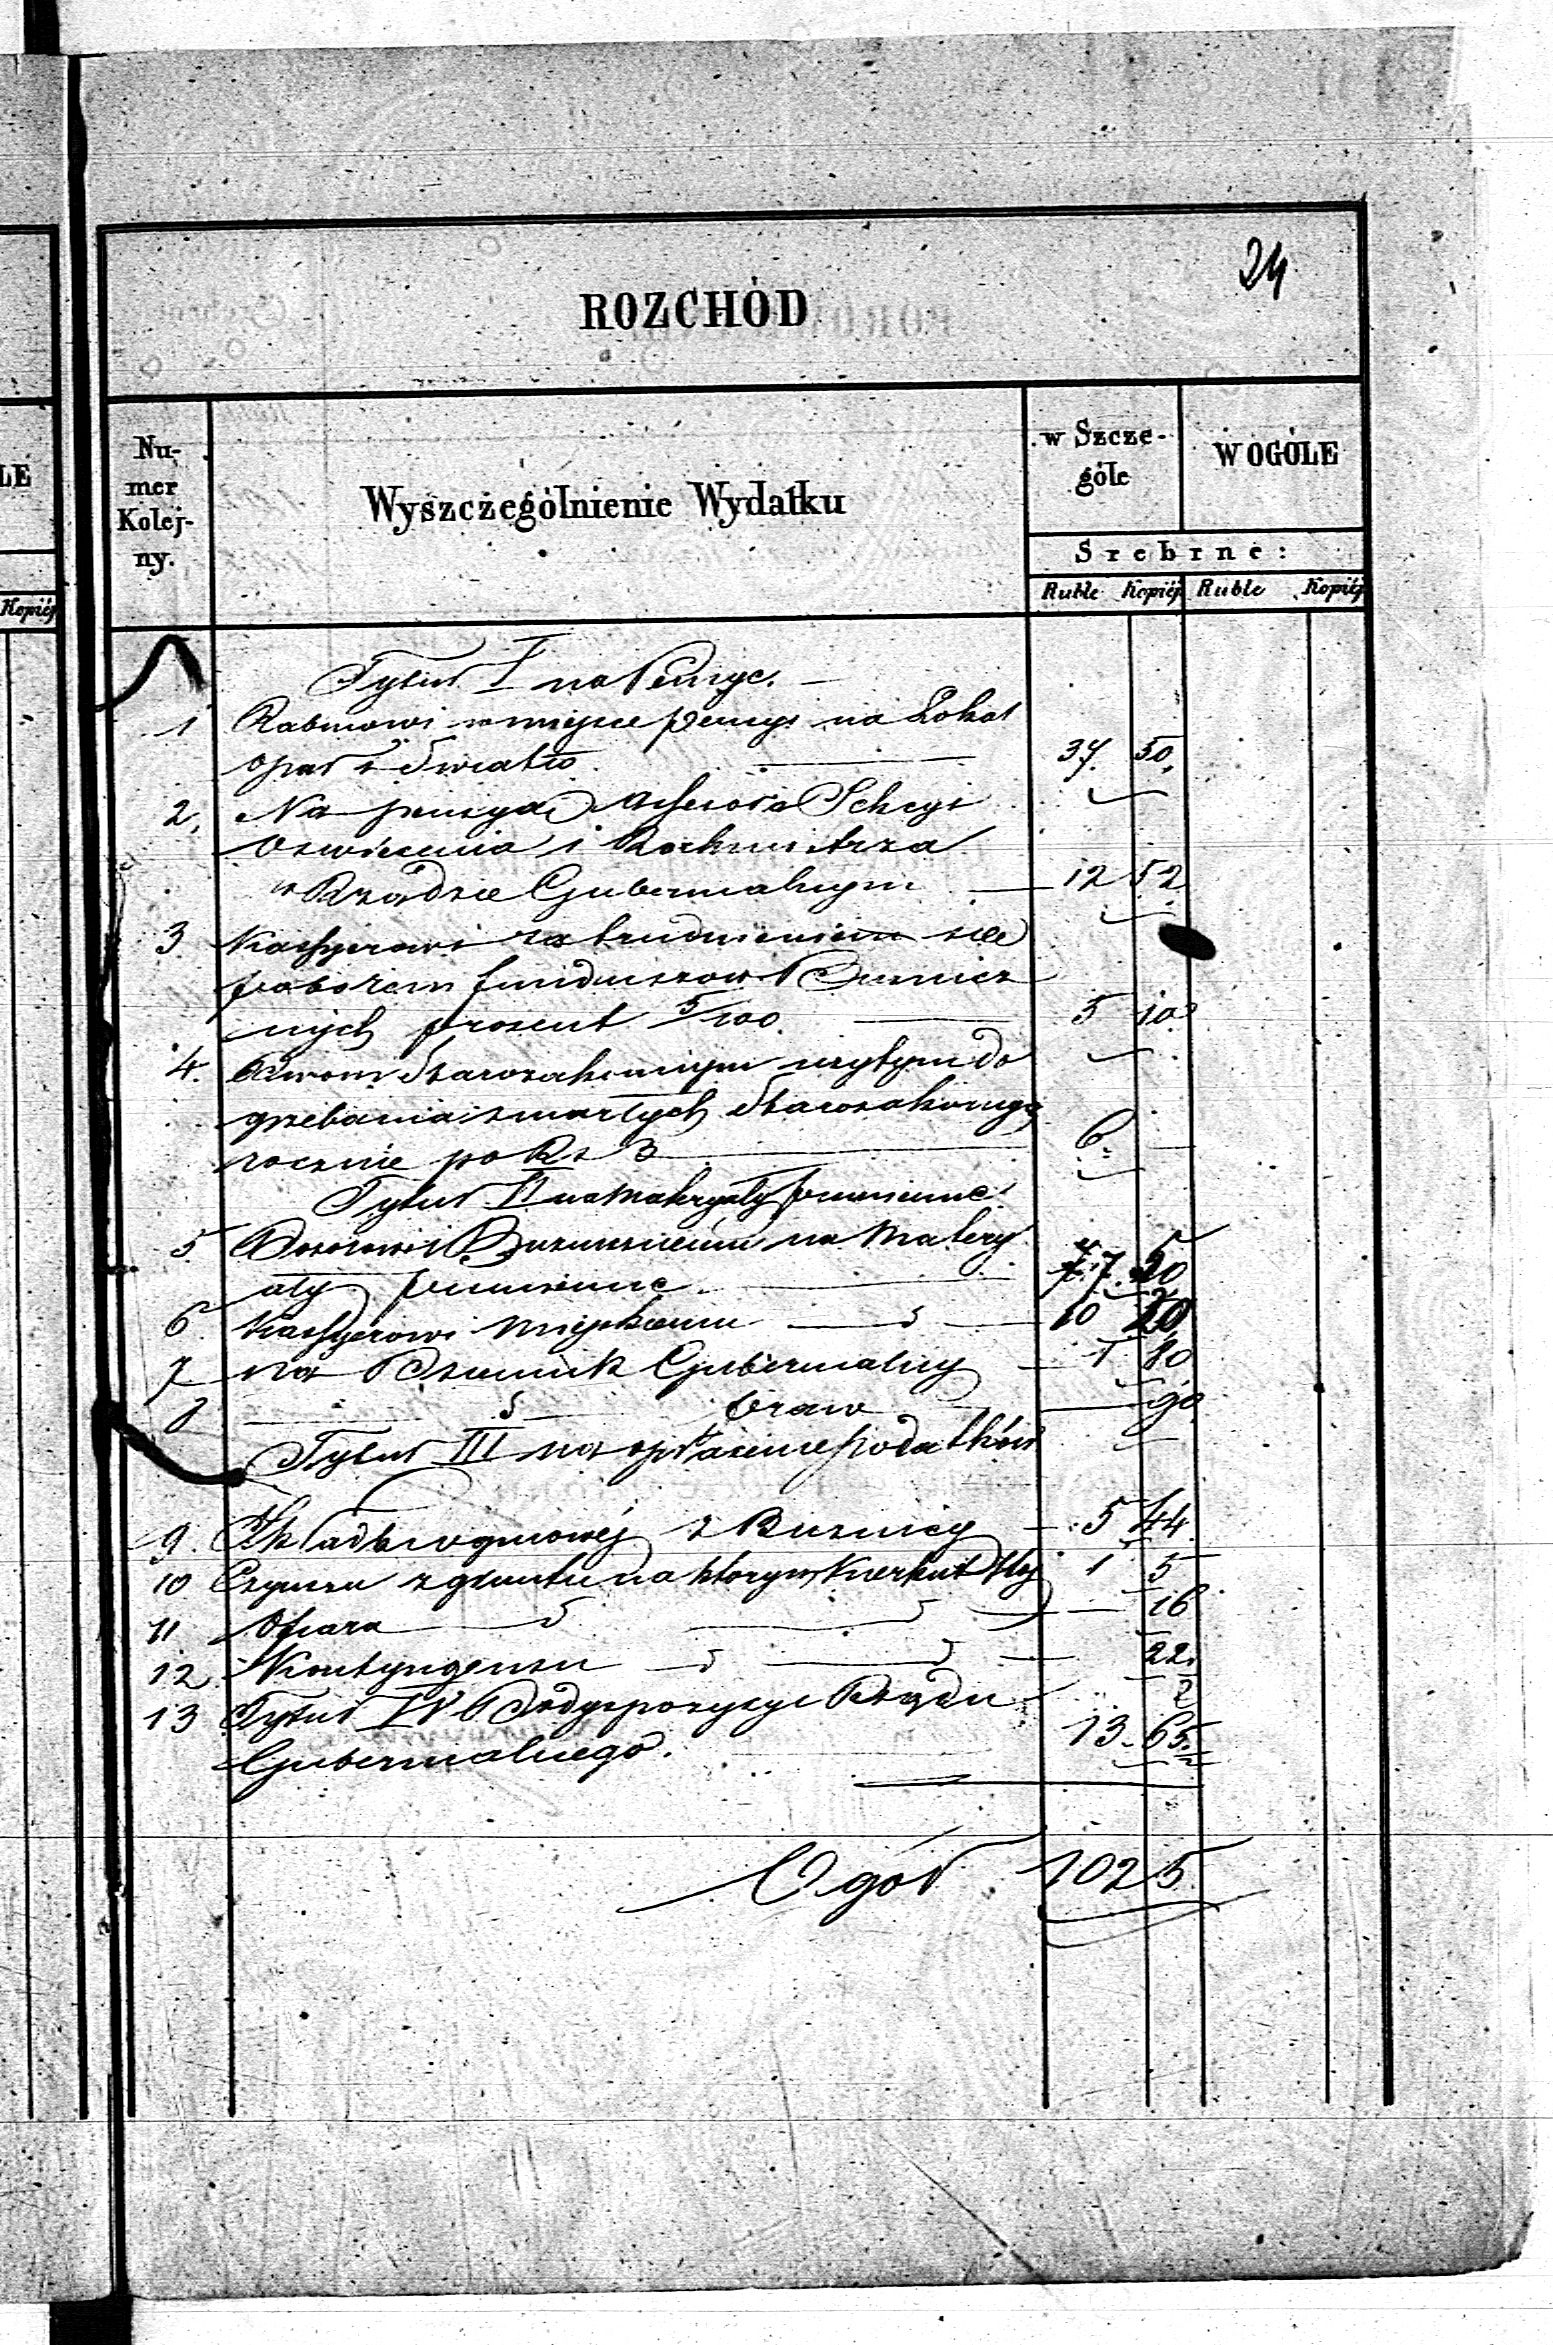 24
ROZCHÓD
LE
Nu-
mer
Kolej-
ny.
Wyszczególnienie Wydatku
w Szcze-
góle
W OGÓLE
Srebrne:
Kopiej
Ruble Kopiej Ruble Kopiej
Tytuł I na Pensye.
1 Rabinowi w miejsce pensyi na Lokal
opał i Światło 37. 50
2. Na pensyą Assesora Sekcyi
Oswiecenia i Rachmistrza
w Rządzie Gubernialnym 12 52
3. Kassyerowi za trudnienie sie
poborem funduszow Buznicz
nych procent 5/100 5 10
4. Dwom Starozakonnym uzytym do
grzebania zmarłych Starozakonnych
rocznie po Rs 3 6
Tytuł II na Materyały pismienne
5 Dozorowi Buzniczemu na Matery
ały pismienne 7 50
6. Kassyerowi Miejskiemu 10 20
7 na Dziennik Gubernialny 1 80
8 praw 90
Tytuł III na opłacenie podatków
9. Składki ogniowej z Buznicy 5 44
10 Czynszu z gruntu na ktorym Kierkut stoi 1 5
11 Ofiara 16
12. Kontyngensu 22
13 Tytuł IV Do dyspozycyi Rządu
Gubernialnego. 13. 65
Ogół 102 5